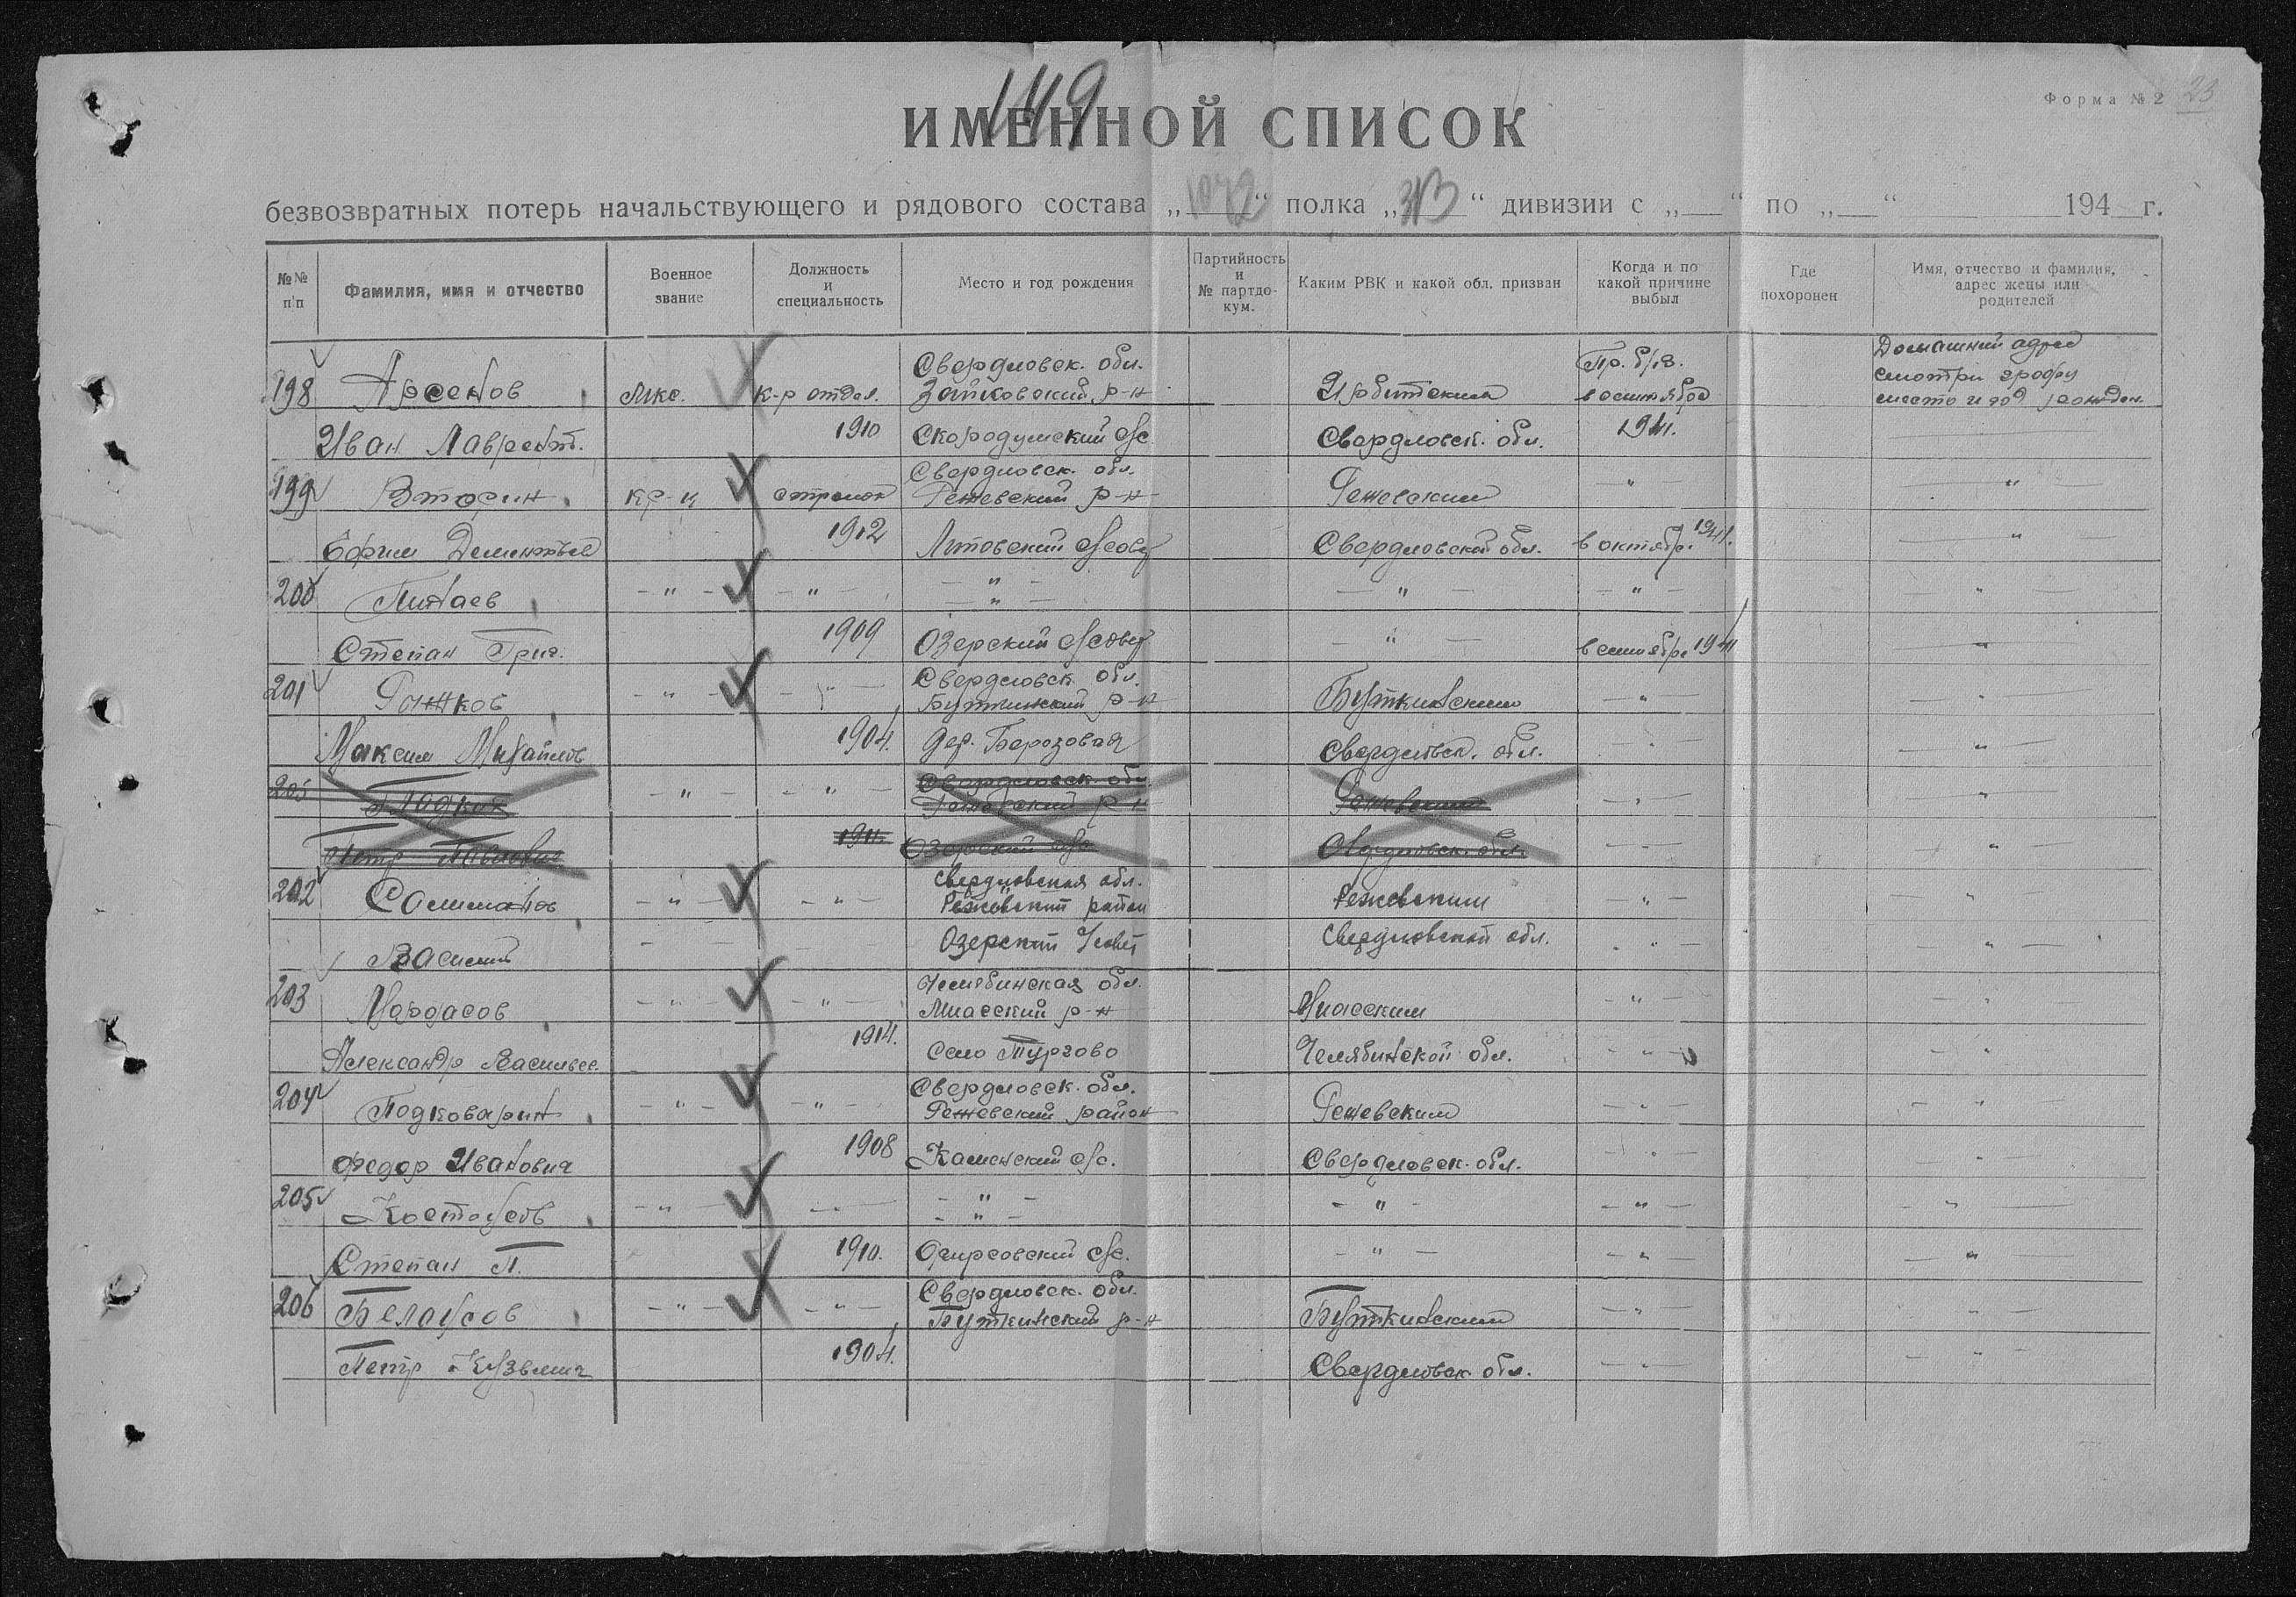 149
Форма №2 23
ИМЕННОЙ СПИСОК
безвозвратных потерь начальствующего и рядового состава „1072“ полка „313“ дивизии с „ “ по „ “ 194 г.
№№ п/п
Фамилия, имя и отчество
Военное звание
Должность и специальность
Место и год рождения
Партийность и № партдокум.
Каким РВК и какой обл. призван
Когда и по какой причине выбыл
Где похоронен
Имя, отчество и фамилия, адрес жены или родителей
Свердловск. обл. Пр. б/в. Домашний адрес
198 Арсенов мкс. к-р отдел. Зайковский р-н Ирбитским в сентябре смотри графу место и год рожден.
Иван Лаврент. 1910 Скородумский с/с Свердловск. обл. 1941.
Свердловск. обл.
199 Вторин кр-ц стрелок Режевский р-н Режевским - " - - " -
Ефим Дементьев 1912 Липовский с/совет Свердловской обл. в октябр. 1941. "
- " -
200 Минаев - " - - " - - " - - " - - " - "
Степан Григ. 1909 Озерский с/совет - " - в сентябре 1941 "
Свердловск. обл.
201 Рожков - " - - " - Буткинский р-н Буткинским - " - "
Максим Михайлов 1904. дер. Березовая Свердловск. обл. - " - "
Свердловск. обл.
- " - - " - Режевский р-н Режевским - " - "
Петр Павлович 1911 Озерский с/с Свердловск. обл. - " - "
Свердловская обл.
202 - " - - " - Режевский район Режевским - " - "
Василий Озерский с/совет Свердловской обл. - " - "
Челябинская обл.
203 Мордасов - " - - " - Миасский р-н Миасским - " - "
Александр Васильев. 1914. Село Тургово Челябинской обл. - " - "
Свердловск. обл.
204 Подковырин - " - - " - Режевский район Режевским - " - "
Федор Иванович 1908 Каменский с/с. Свердловск. обл. - " - "
- " -
205 Костоусов - " - - " - - " - - " - "
Степан П. 1910. с/с. - " - - " - "
Свердловск. обл.
206 Белоусов - " - - " - Буткинский р-н Буткинским - " - "
Петр Кузьмич 1904. Свердловск. обл. - " - "